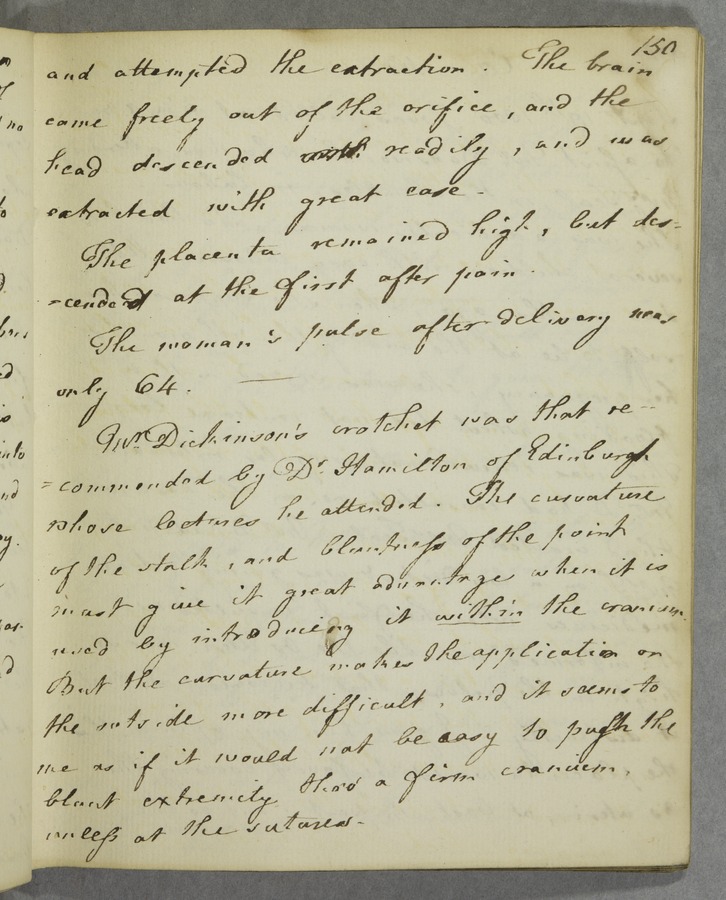 150
and attempted the extraction. The brain
came freely out of the orifice, and the
head descended readily, and was
extracted with great ease.
The placenta remained high, but des-
-cended at the first after pain.
The woman's pulse after delivery was
only 64. —
Mr. Dickinson's crotchet was that re-
=commended by Dr. Hamilton of Edinburgh
whose lectures he attended. The curvature
of the stalk, and bluntness of the point
must give it great advantage when it is
used by introducing it within the cranium.
But the curvature makes the application on
the outside more difficult, and it seems to
me as if it would not be easy to push the
blunt extremity thro' a firm cranium,
unless at the sutures.